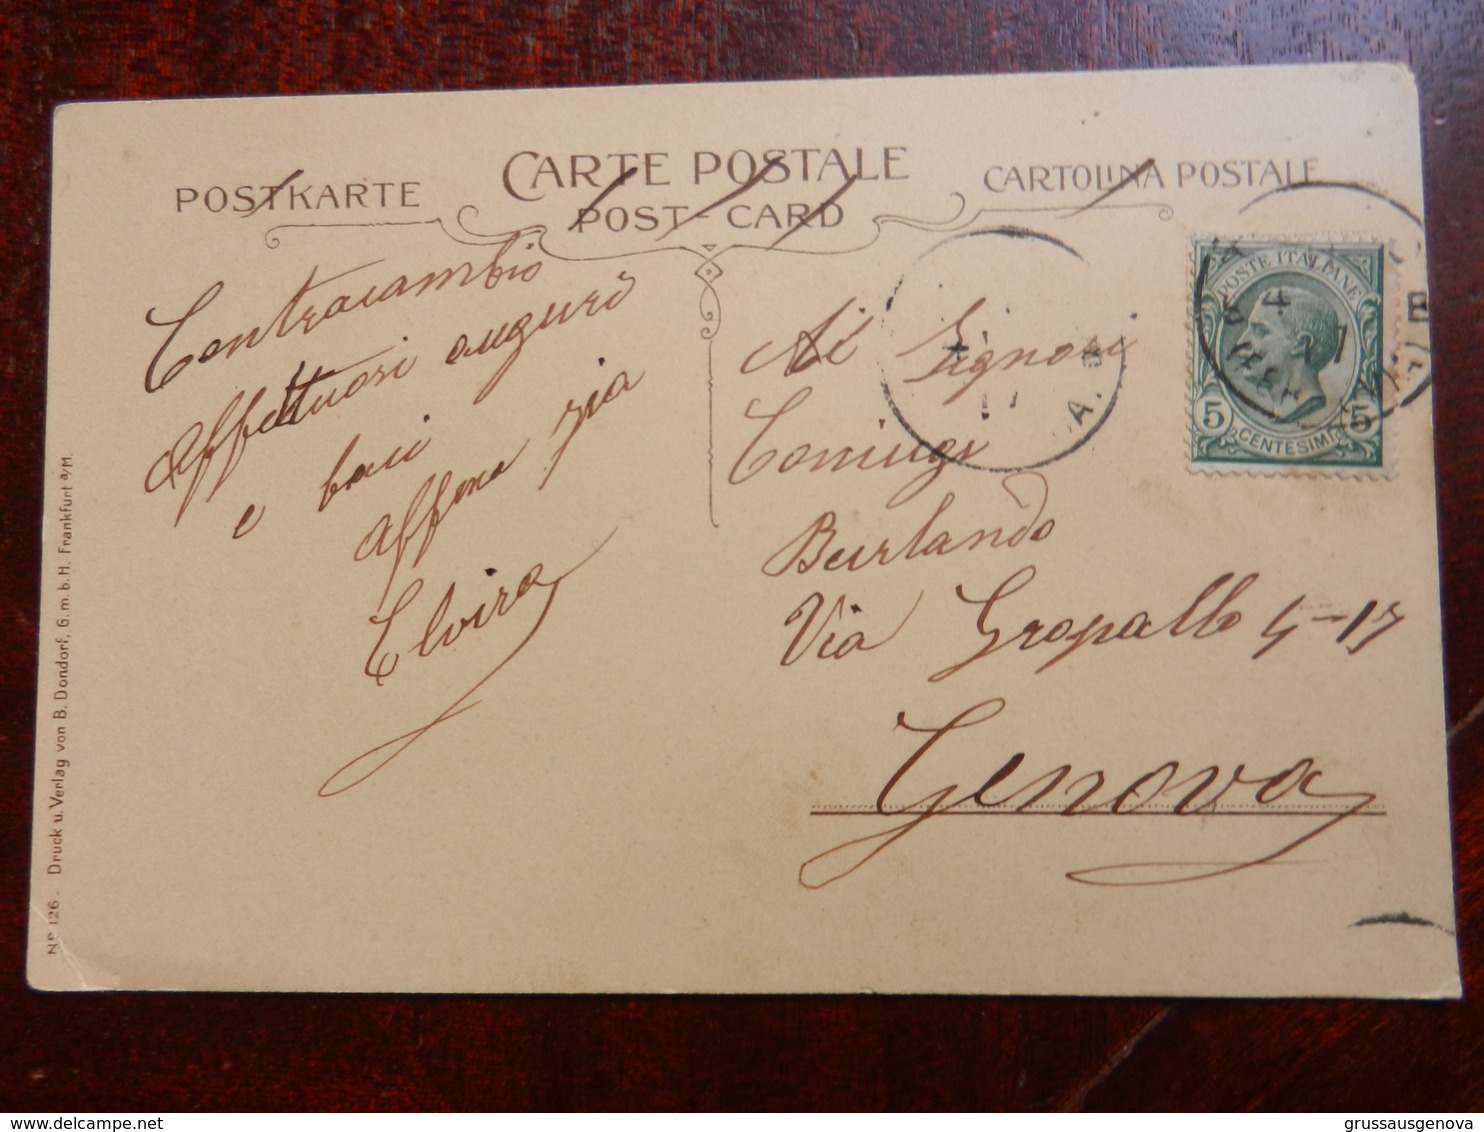 POSTKARTE
CARTE POSTALE
CARTOLINA POSTALE
POST-CARD
Contracambio
affettuosi auguri
e baci
affma zia
Elvira
Ai Signori
Coniugi
Burlando
Via Gropallo 5-17
Genova
POSTE ITALIANE
5 CENTESIMI 5
Nº 126. Druck u. Verlag von B. Dondorf, G.m.b.H. Frankfurt a/M.
delcampe.net
grussausgenova